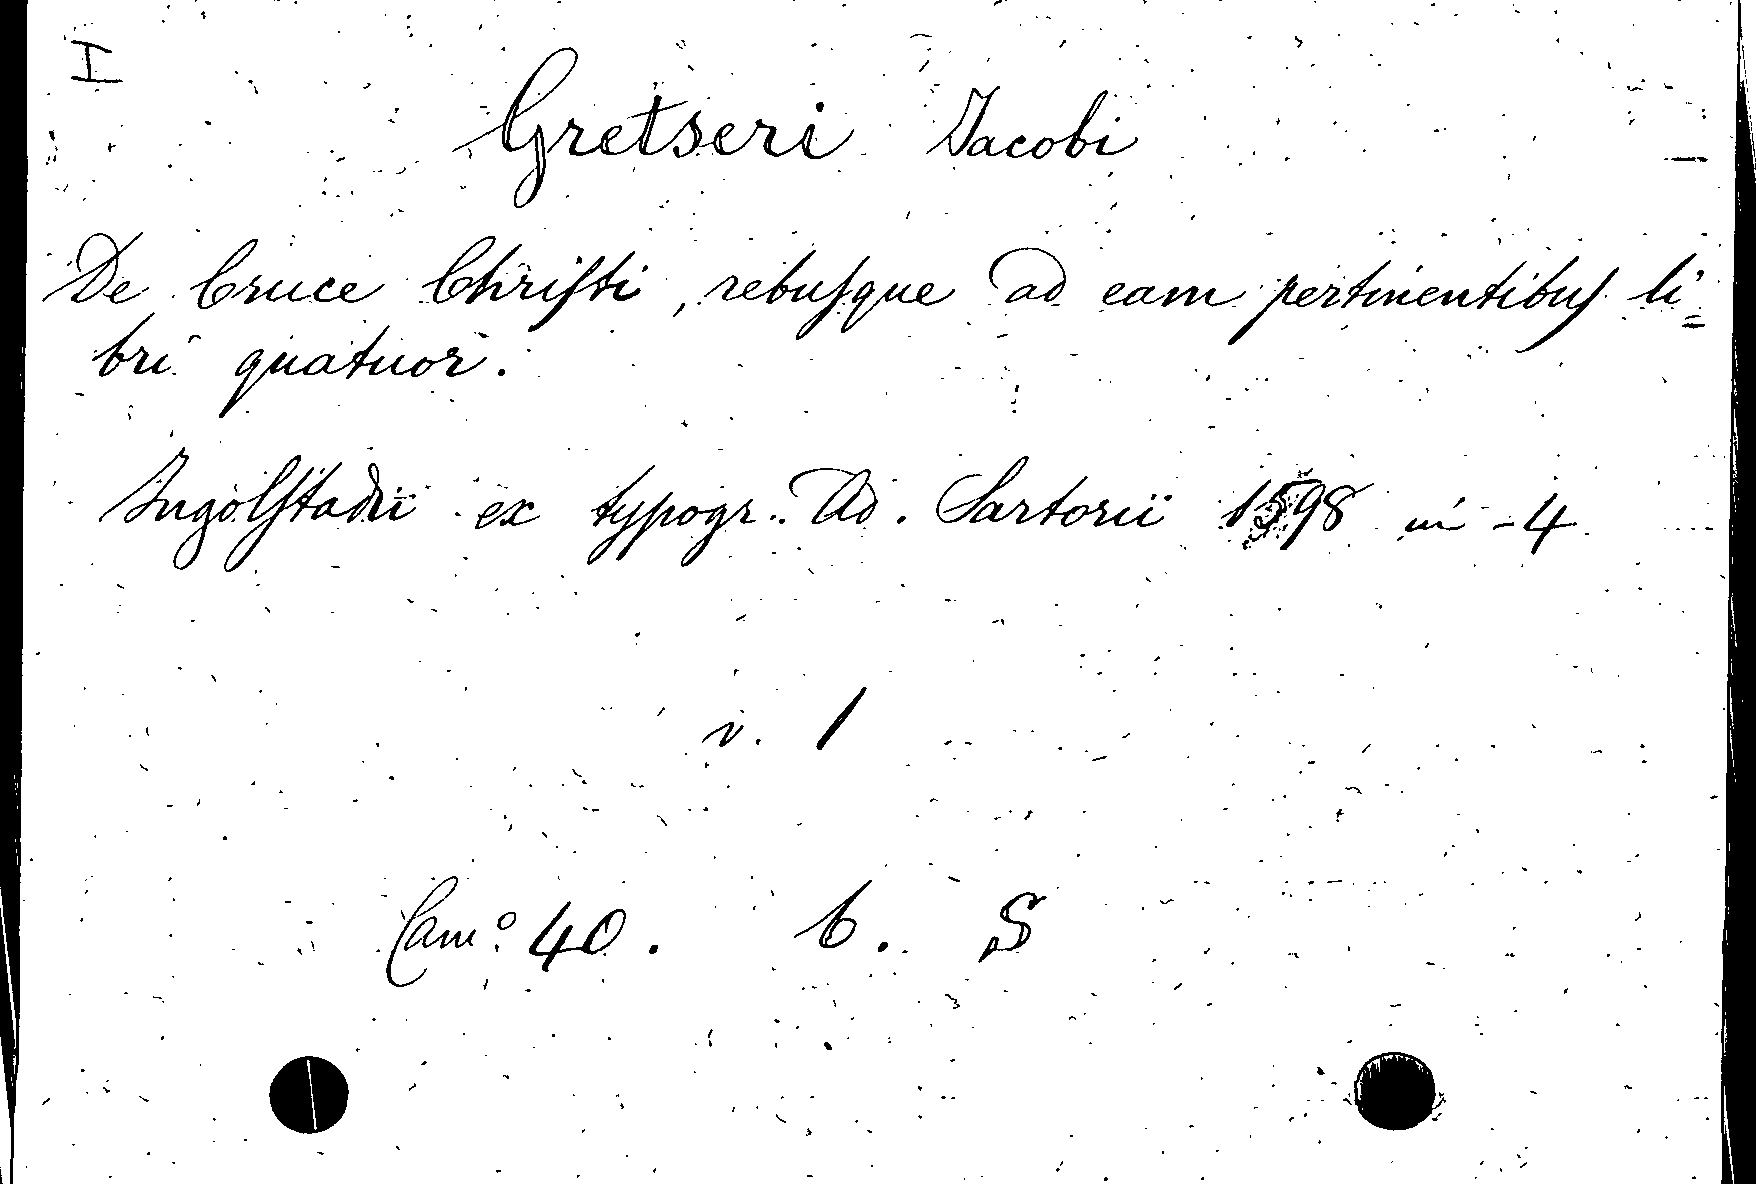 I
Gretseri Jacobi
De Cruce Chriſti, rebuſque ad eam pertinentibuſ li=
bri quatuor.
Ingolſtadii ex typogr. Ad. Sartorii 1598 in -4
v. 1
Cam.º 40. b. S